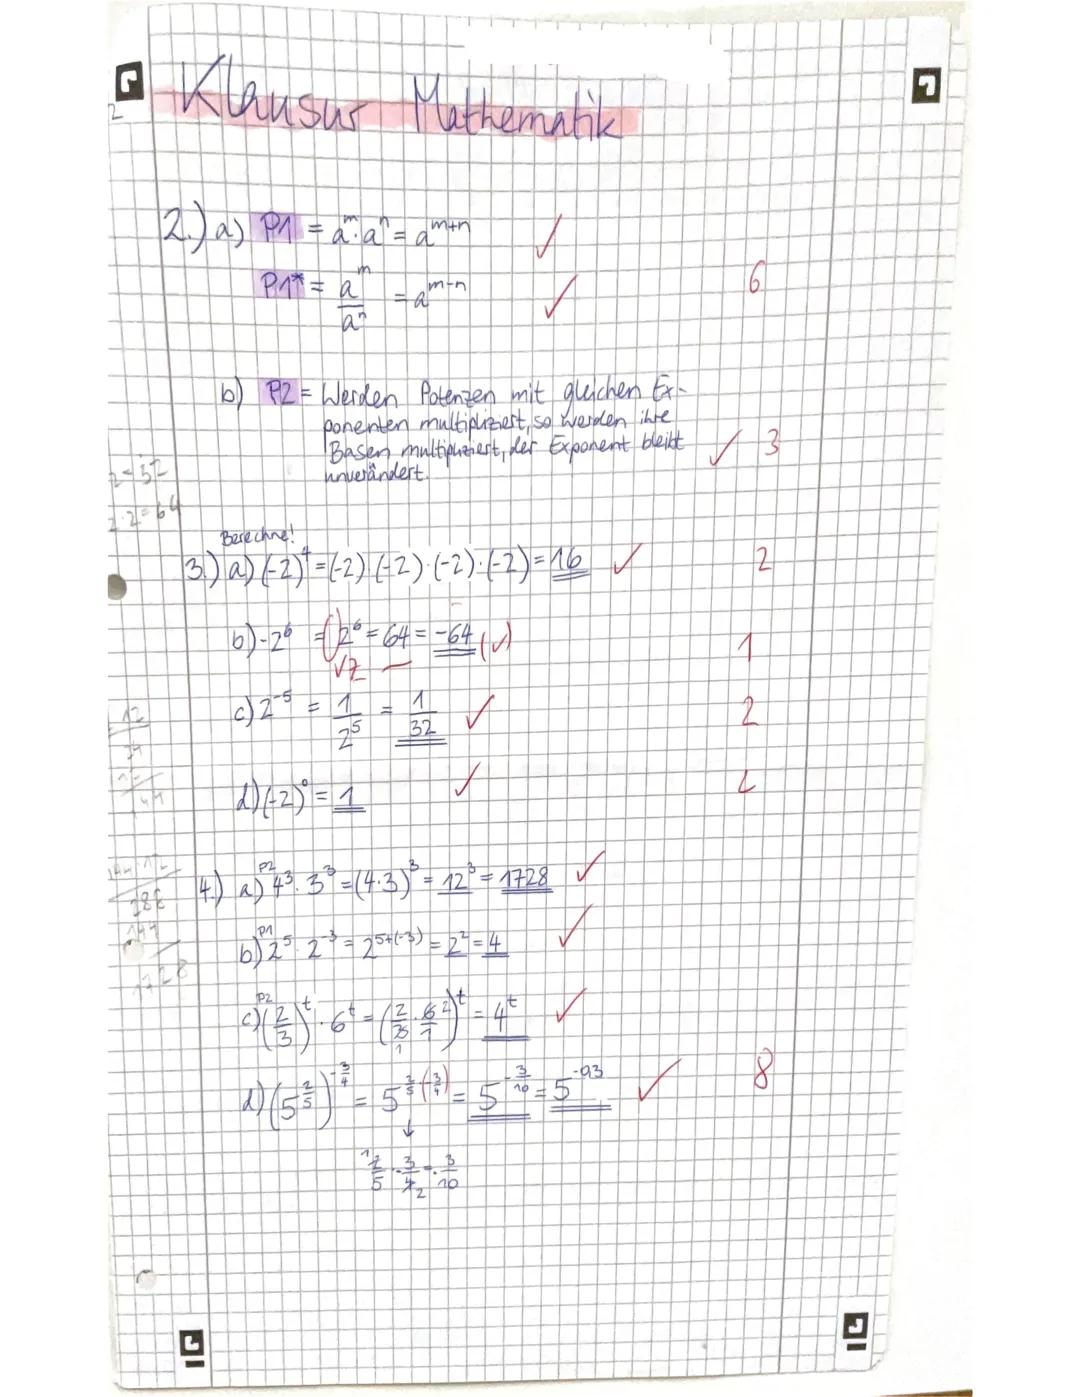 Klausur Mathematik
2.) a) P1 = a^m · a^n = a^(m+n) ✓
P1* = a^m/a^n = a^(m-n) ✓ 6
b) P2 = Werden Potenzen mit gleichen Ex-
ponenten multipliziert, so werden ihre
Basen multipliziert, der Exponent bleibt ✓ 3
unverändert.
2·2=64
Berechne!
3.) a) (-2)^4 = (-2)·(-2)·(-2)·(-2) = 16 ✓ 2
b) -2^6 = 2^6 = 64 = -64 (✓) 1
VZ
c) 2^-5 = 1/2^5 = 1/32 ✓ 2
d) (-2)^0 = 1 ✓ 2
4.) a) P2 4^3 · 3^3 = (4·3)^3 = 12^3 = 1728 ✓
b) P1 2^5 · 2^-3 = 2^(5+(-3)) = 2^2 = 4 ✓
c) P2 (2/3)^t · 6^t = (2/3 · 6/1)^t = 4^t ✓
d) (5^(2/5))^(-3/4) = 5^(2/5·(-3/4)) = 5^(-3/10) = 5^(-0,3) ✓ 8
2/5 · 3/4 = 3/10
288
144
1728